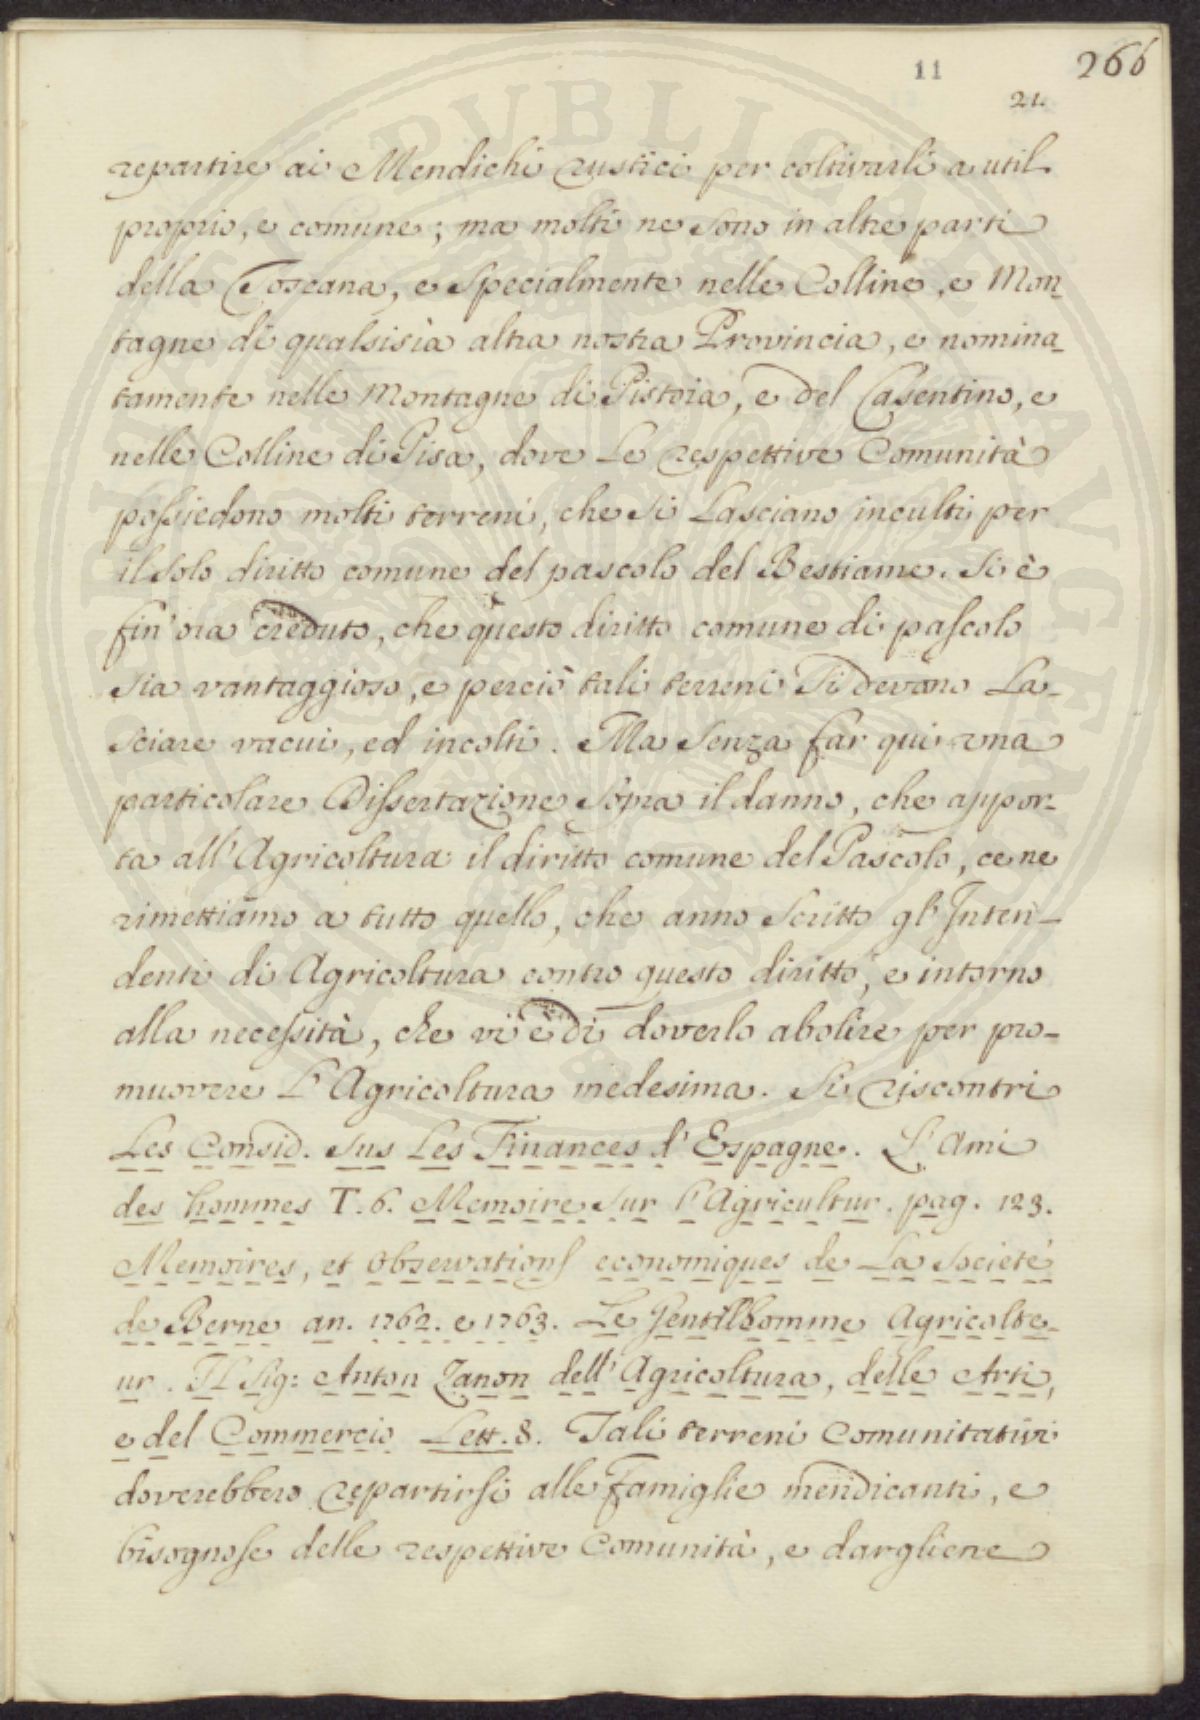 11
266
21.
repartire ai Mendichi rustici per coltivarli a util
proprio, e comune; ma molti ne sono in altre parti
della Toscana, e specialmente nelle Colline, e Mon-
tagne di qualsisia altra nostra Provincia, e nomina-
tamente nelle Montagne di Pistoia, e del Casentino, e
nelle Colline di Pisa, dove le respettive Comunità
possiedono molti terreni, che si lasciano inculti per
il solo diritto comune del pascolo del Bestiame. Si è
fin'ora creduto, che questo diritto comune di pascolo
sia vantaggioso, e perciò tali terreni si devano la-
sciare vacui, ed incolti. Ma senza far qui una
particolare Dissertazione sopra il danno, che appor-
ta all'Agricoltura il diritto comune del Pascolo, ce ne
rimettiamo a tutto quello, che anno scritto gl'Inten-
denti di Agricoltura contro questo diritto, e intorno
alla necessità, che vi è di doverlo abolire per pro-
muovere l'Agricoltura medesima. Si riscontri
Les Consid. sus les Finances d'Espagne. L'Ami
des hommes T. 6. Memoire sur l'Agricultur. pag. 123.
Memoires, et observations economiques de La Societé
de Berne an. 1762. e 1763. Le Gentilhomme Agricolte-
ur. Il Sig: Anton Zanon dell'Agricoltura, delle Arti,
e del Commercio Lett. 8. Tali terreni Comunitativi
doverebbero repartirsi alle Famiglie mendicanti, e
bisognose delle respettive Comunità, e dargliene